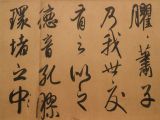 臞々蕭子
乃我世交
有之以々
德音孔膠
環堵之中